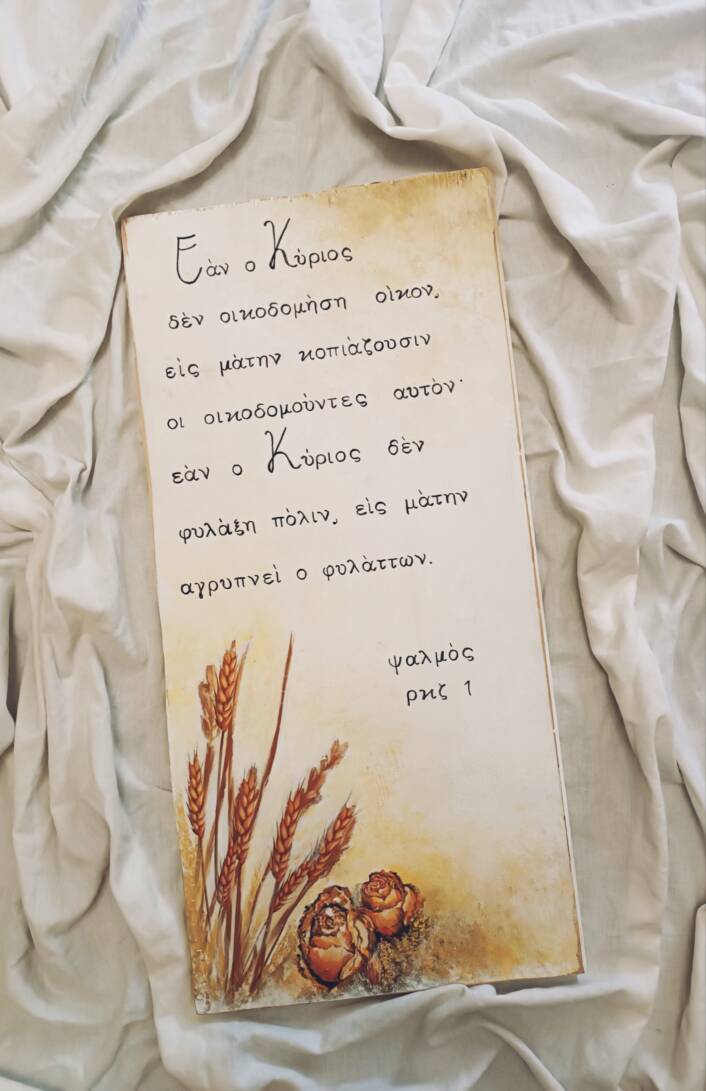 Εὰν ο Κὺριος
δὲν οικοδομὴση οὶκον,
εὶς μὰτην κοπιὰζουσιν
οι οικοδομοὺντες αυτὸν·
εὰν ο Κὺριος δὲν
φυλὰξη πὸλιν, εὶς μὰτην
αγρυπνεὶ ο φυλὰττων.
ψαλμὸς
ρκζ 1